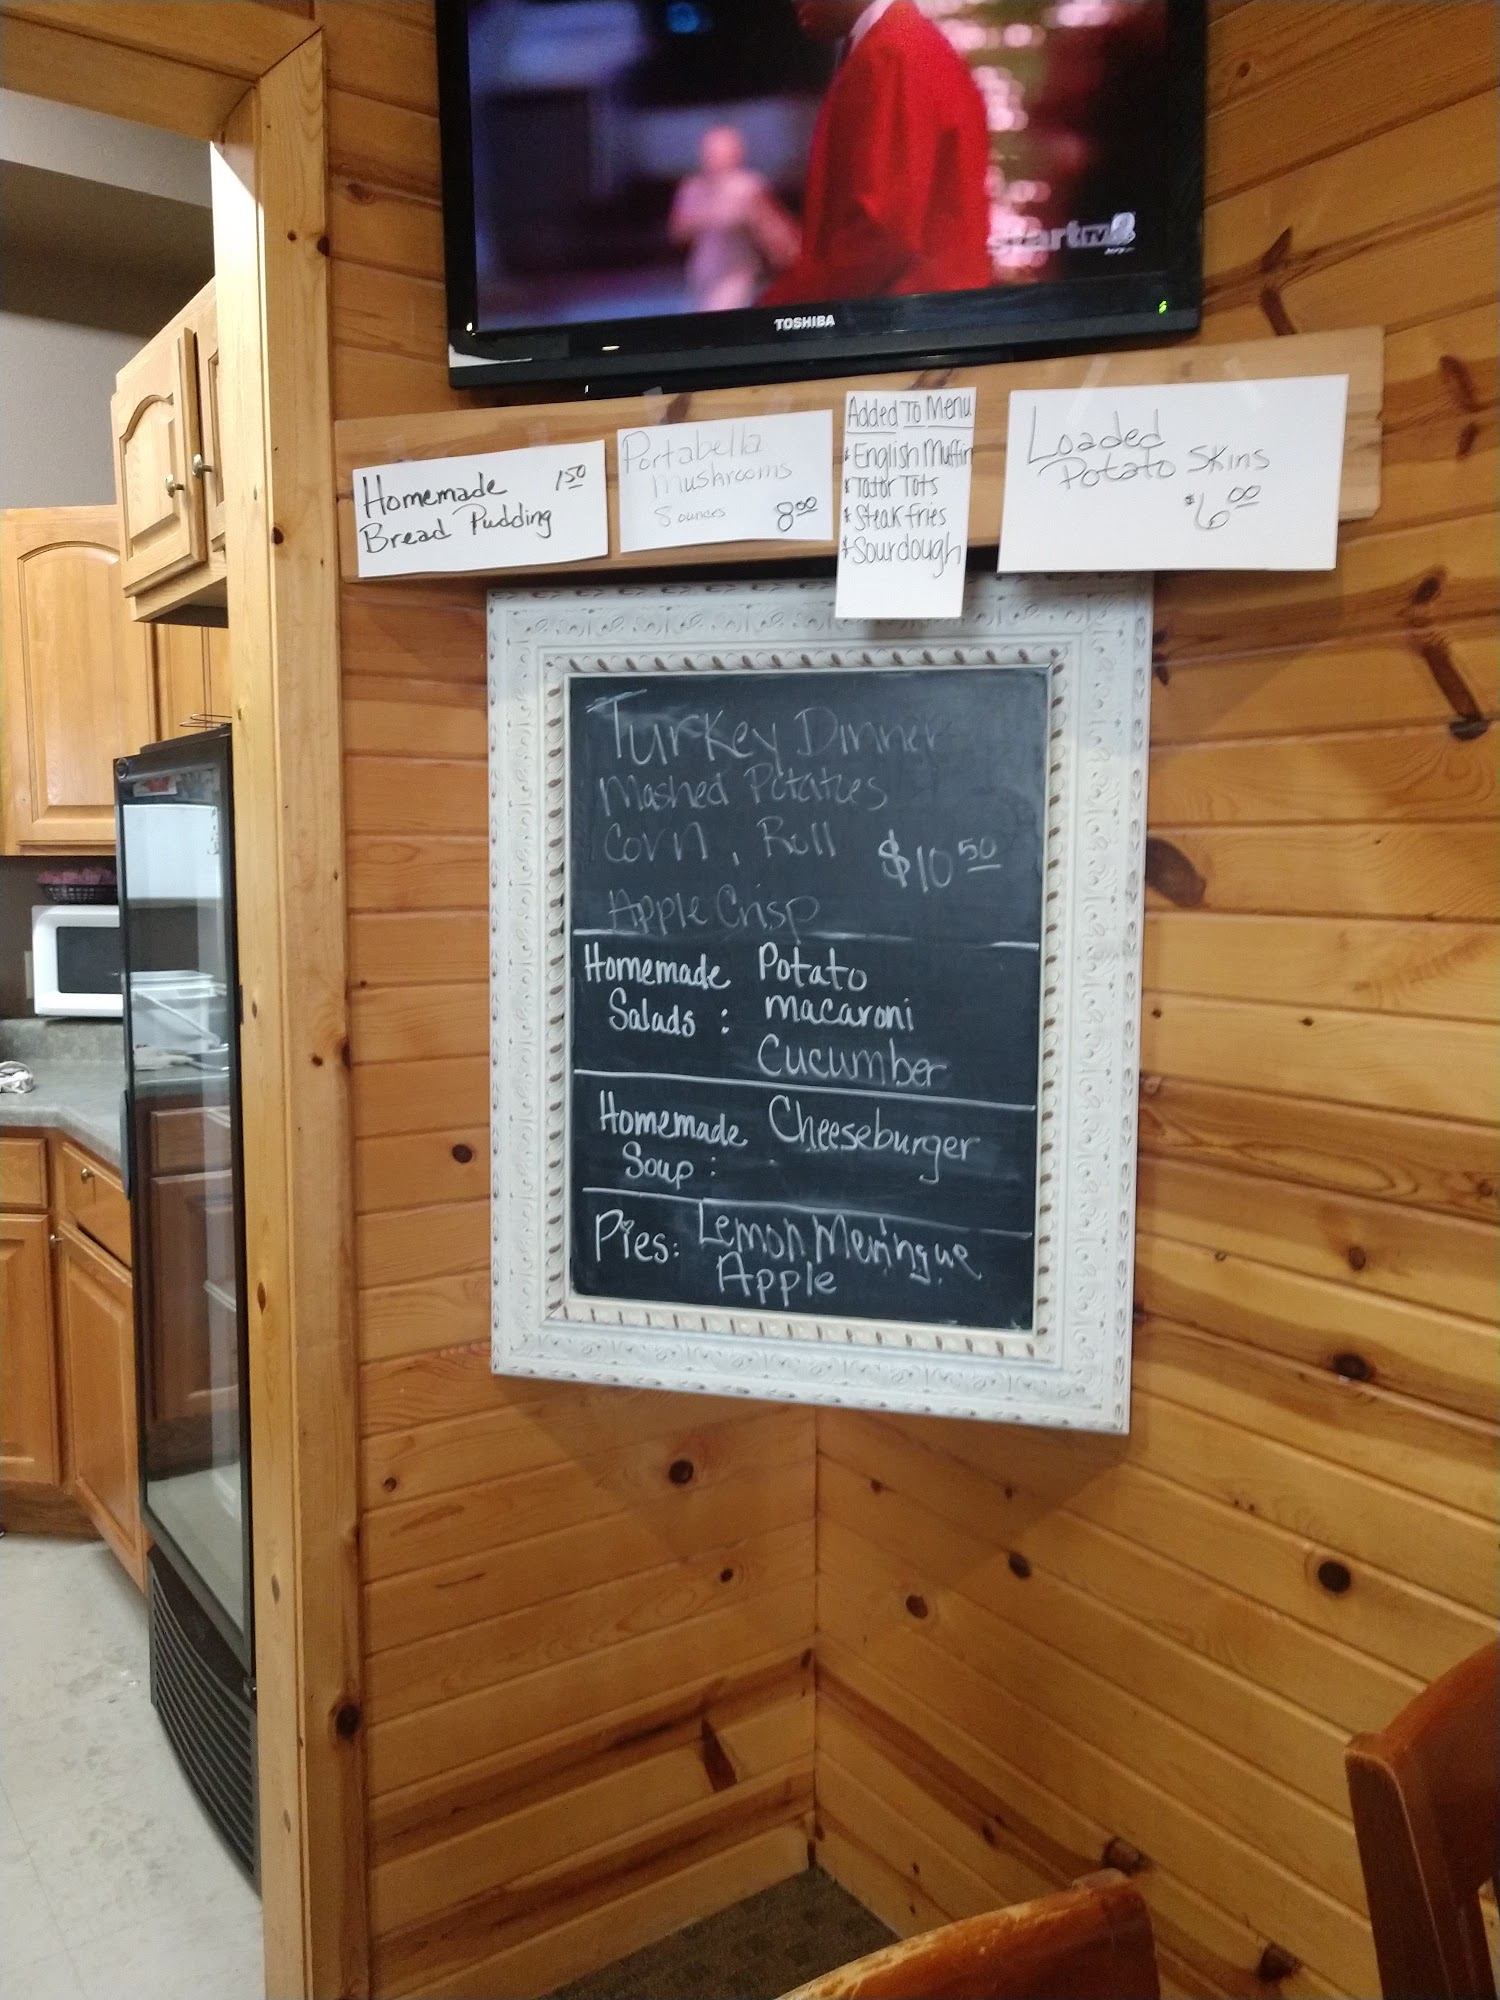 start TV 8
TOSHIBA
Homemade 1 50
Bread Pudding
Portabella
Mushrooms
8 ounces 8 00
Added To Menu
* English Muffin
* Tator Tots
* Steak fries
* Sourdough
Loaded
Potato Skins
$6 00
Turkey Dinner
Mashed Potatoes
Corn, Roll $10 50
Apple Crisp
Homemade Potato
Salads : macaroni
Cucumber
Homemade Cheeseburger
Soup :
Pies: Lemon Meringue
Apple